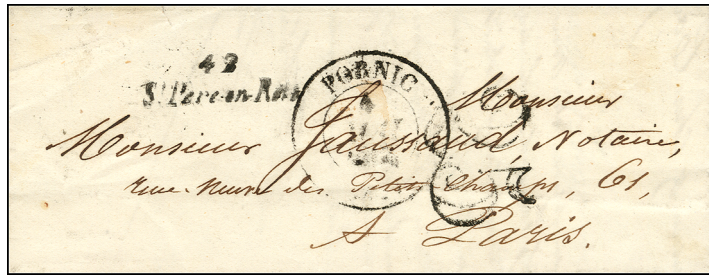 42
St Pere-en-Retz
PORNIC
Monsieur
Monsieur Jaussaud, Notaire,
rue Neuve des Petits Champs, 61,
A Paris.